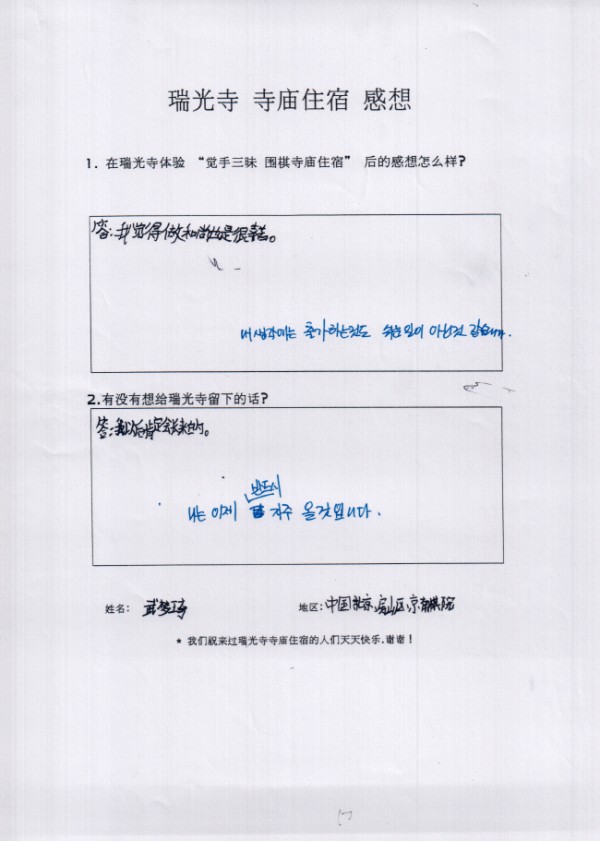 瑞光寺 寺庙住宿 感想
1. 在瑞光寺体验 “觉手三昧 围棋寺庙住宿” 后的感想怎么样?
答:我觉得做和尚也是很辛苦。
내생각에는 출가하는것도 쉬운일이 아닌것 같습니다.
2.有没有想给瑞光寺留下的话?
答:我以后肯定会常来的。
반드시
나는 이제 자주 올것입니다.
姓名: 武梦
地区:中国北京,房山区,京都棋院
* 我们祝来过瑞光寺寺庙住宿的人们天天快乐,谢谢!